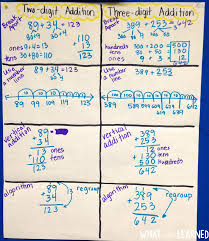 Two-digit Addition
Three-digit Addition
Break Apart
89 + 34 = 123
80+9 30+4
ones 9+4=13
tens 80+30=110
110
13
123
Break Apart
389 + 253 = 642
hundreds 300+200=500
tens 80+50=130
ones 9+3=12
500
130
12
642
Use a number line
89 + 34 = 123
89 99 109 119 123
Use a number line
389 + 253
vertical addition
89
+34
ones 13
tens + 110
123
vertical addition
389
+253
12 ones
130 tens
+500 hundreds
642
algorithm
89
+34
123
regroup
algorithm
389
+253
642
regroup
WHAT LEARNED